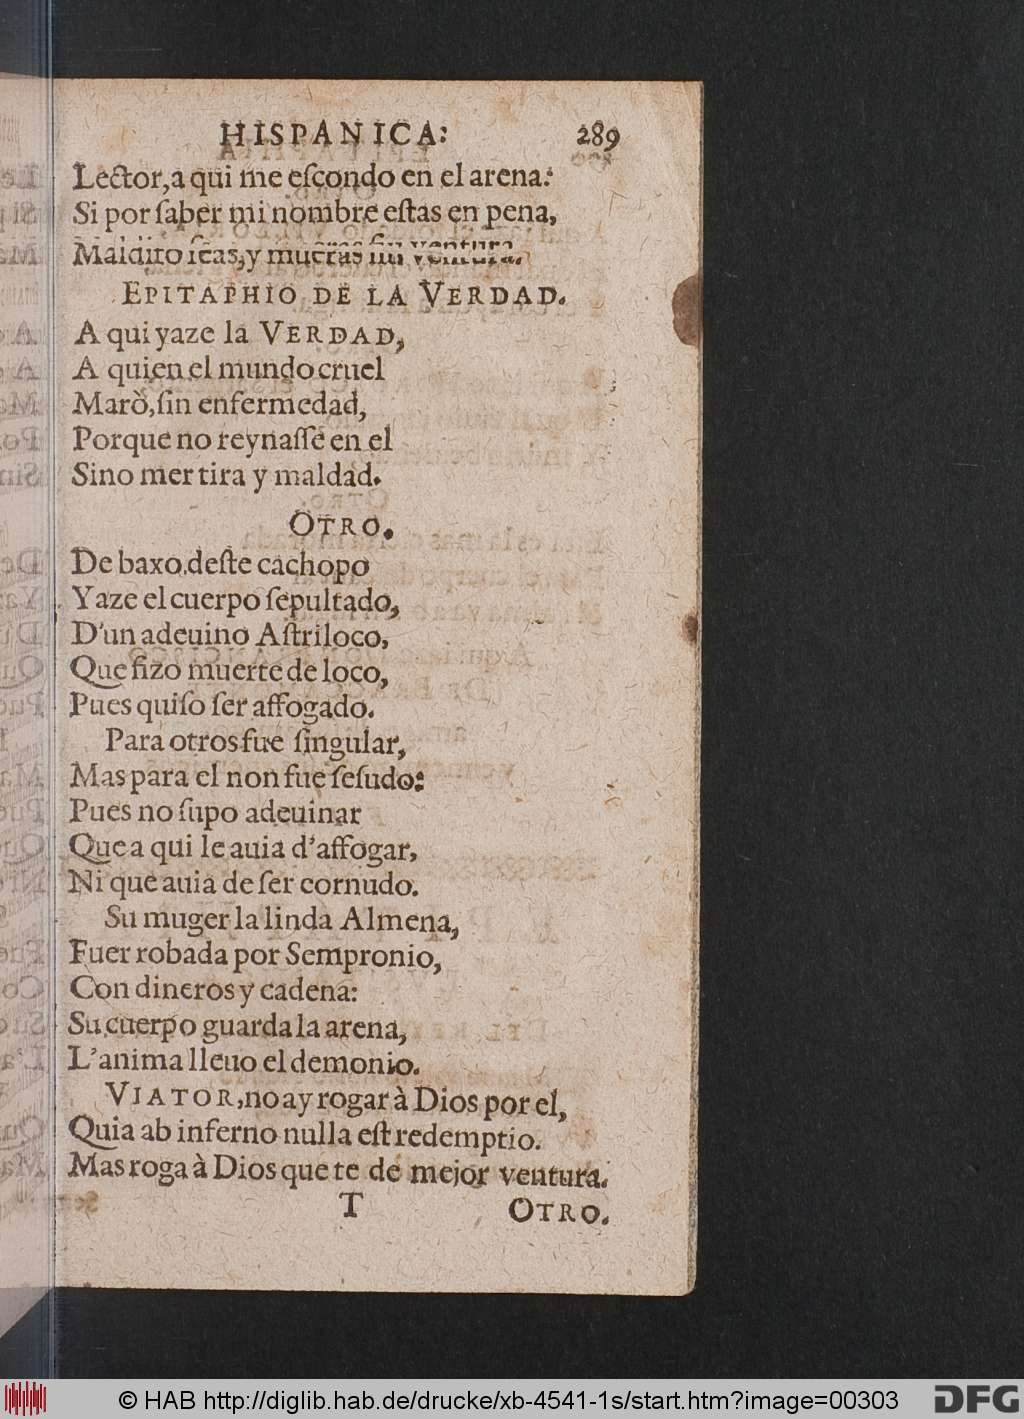 HISPANICA: 289
Lector, a qui me eſcondo en el arena:
Si por ſaber mi nombre eſtas en pena,
Maldito ſeas, y mueras ſin ventura.
EPITAPHIO DE LA VERDAD.
A qui yaze la VERDAD,
A quien el mundo cruel
Marò, ſin enfermedad,
Porque no reynaſſe en el
Sino mertira y maldad.
OTRO.
De baxo deſte cachopo
Yaze el cuerpo ſepultado,
D'un adeuino Aſtriloco,
Que fizo muerte de loco,
Pues quiſo ſer affogado.
Para otros fue ſingular,
Mas para el non fue ſeſudo:
Pues no ſupo adeuinar
Que a qui le auia d'affogar,
Ni que auia de ſer cornudo.
Su muger la linda Almena,
Fuer robada por Sempronio,
Con dineros y cadena:
Su cuerpo guarda la arena,
L'anima lleuo el demonio.
VIATOR, no ay rogar à Dios por el,
Quia ab inferno nulla eſt redemptio.
Mas roga à Dios que te de mejor ventura.
T OTRO.
© HAB http://diglib.hab.de/drucke/xb-4541-1s/start.htm?image=00303 DFG